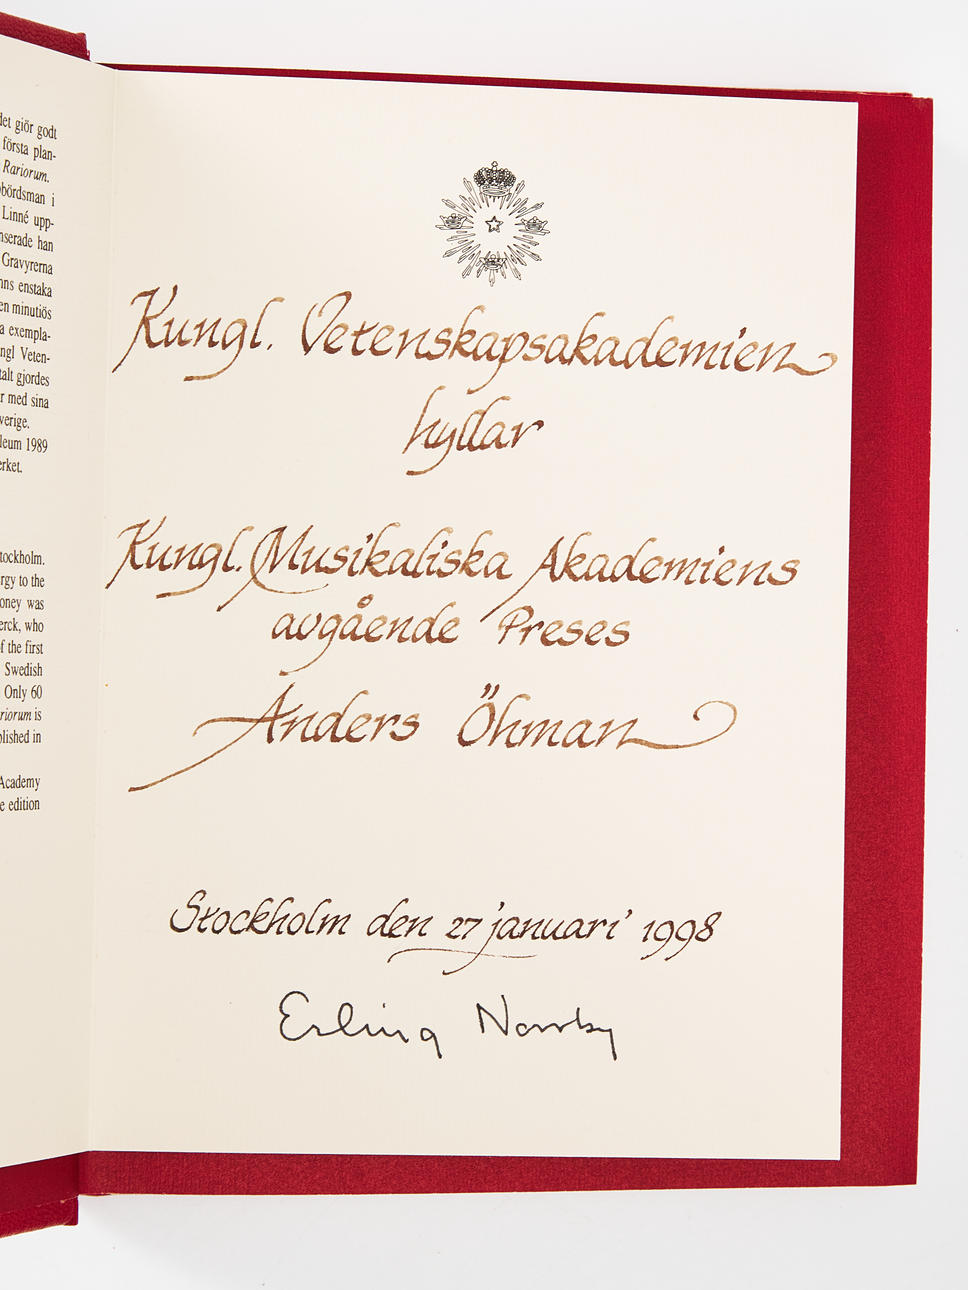 det giör godt
första plan-
Rariorum.
bördsman i
Linné upp-
nserade han
Gravyrerna
nns enstaka
en minutiös
a exempla-
ngl Veten-
talt gjordes
r med sina
verige.
leum 1989
erket.
tockholm.
rgy to the
oney was
erck, who
f the first
Swedish
Only 60
riorum is
blished in
Academy
e edition
Kungl. Vetenskapsakademien
hyllar
Kungl. Musikaliska Akademiens
avgående Preses
Anders Öhman
Stockholm den 27 januari 1998
Erling Norrby